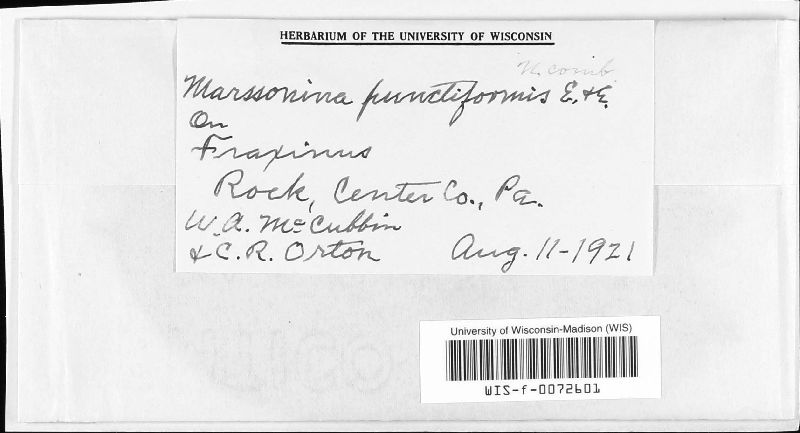 HERBARIUM OF THE UNIVERSITY OF WISCONSIN
n. comb.
Marssonina punctiformis E. & E.
On
Fraxinus
Rock, Center Co., Pa.
W. A. McCubbin
& C. R. Orton Aug. 11-1921
University of Wisconsin-Madison (WIS)
WIS-f-0072601